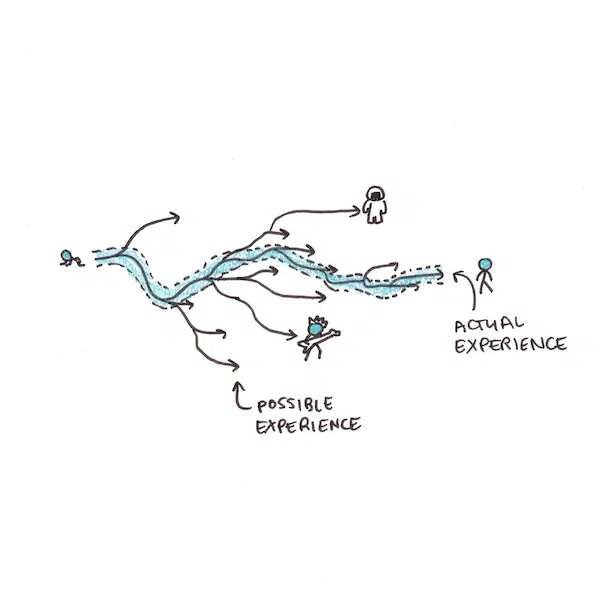 ACTUAL
EXPERIENCE
POSSIBLE
EXPERIENCE